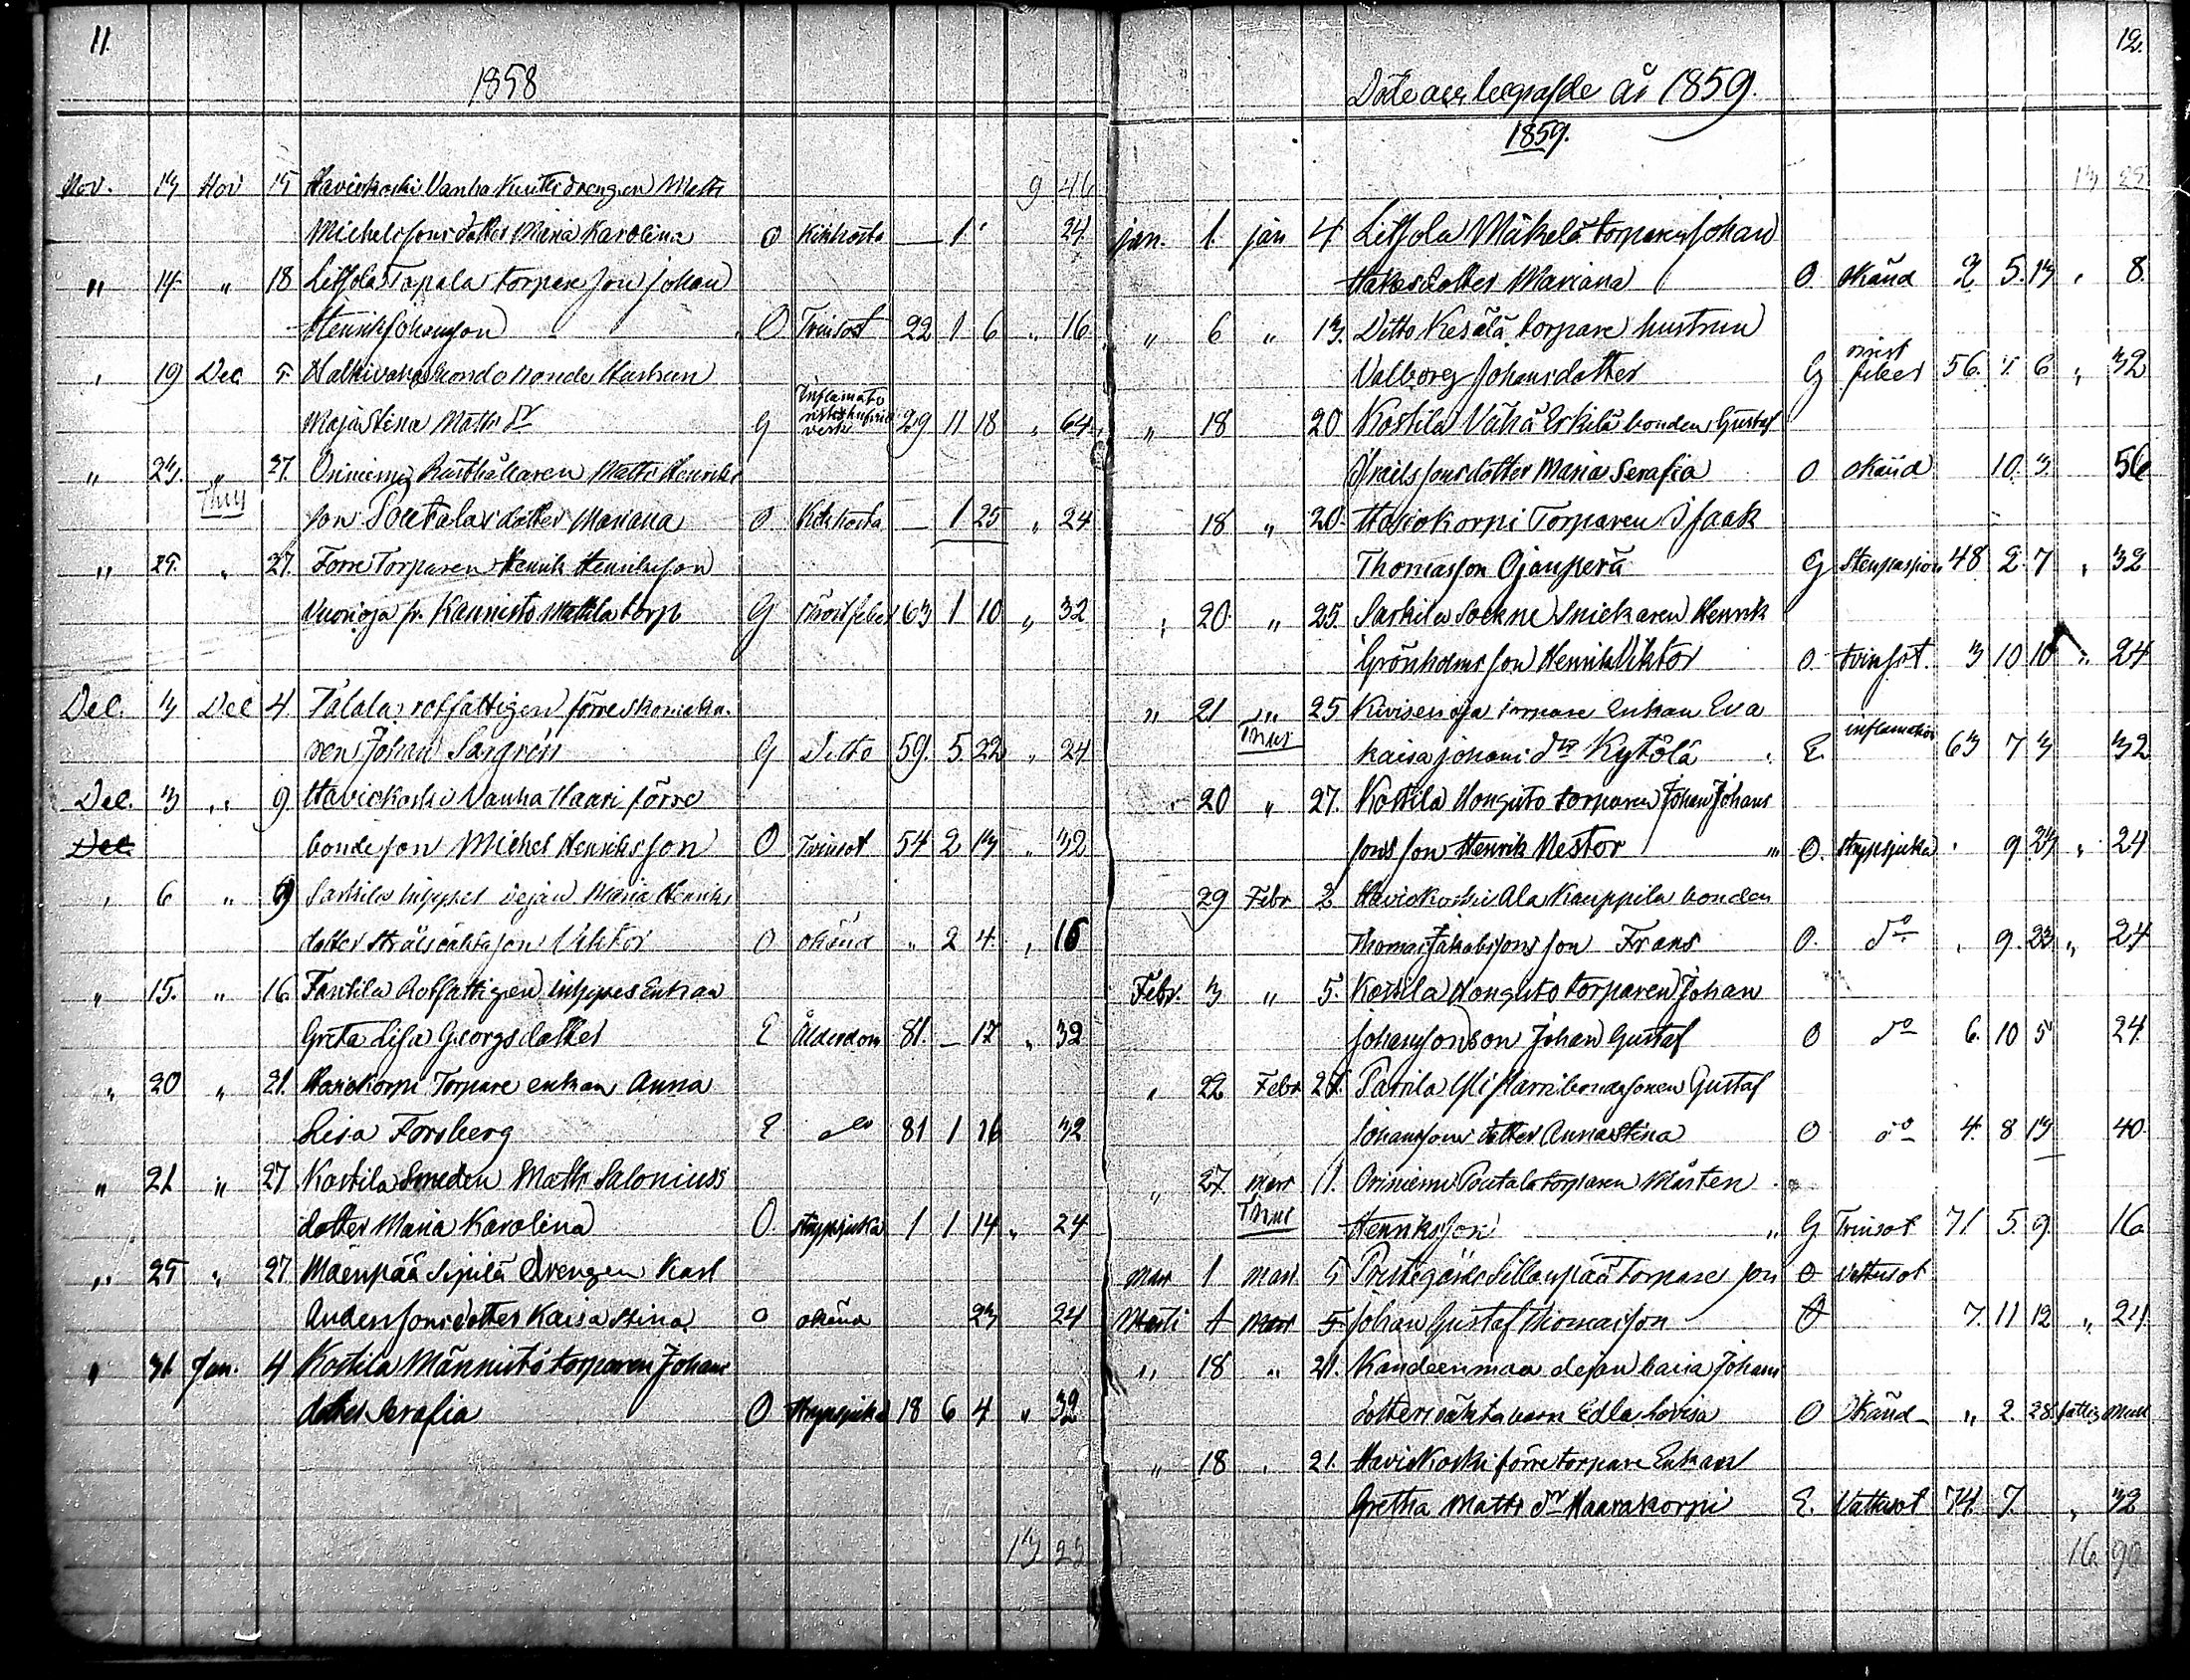 11.
1858
9 46
Nov. 13 Nov 15 Haviokoski Vanha Knuuti drengen Matts
Michelssons dotter Maria Karolina O Kikhosta — 1 " 24
" 14 " 18 Litsola Tapala torpare son Johan
Henrik Johansson O Tvinsot 22 1 6 " 16
" 19 Dec 5 bonde Hustrun
Maja Stina Matts dr G 29 11 18 " 64
" 23 " 27. Oriniemi Rusthållaren Matts Henriks
son Poutalas dotter Mariana O. Kikhosta — 1 25 " 24
" 25. " 27. Förre Torparen Henrik Henriksson
Vuorioja fr. Kannisto Mattila torp G Bröstfeber 63 1 10 " 32
Dec. 3 Dec 4. Talala rotfattigen förre skomaka-
ren Johan Sargrén G Ditto 59. 5 22 " 24
Dec. 3 " 9 Haviokoski Vanha Haari förre
Dec. bondeson Michel Henriksson O Tvinsot 54 2 13 " 32
" 6 " 9 Sarkila inhyses pigan Maria Henriks
dotter oäkta son Viktor O okänd " 2 4 " 16
" 15. " 16. Fantila Rotfattigen inhyses Enkan
Greta Lisa Georgsdotter E Ålderdom 81. — 17 " 32
" 20 " 21. Haviokorpi Torpare enkan Anna
Lisa Forsberg E do 81 1 16 32
" 21 " 27 Kostila Smeden Matts Saloniuss
dotter Maria Karolina O. strypsjuka 1 1 14 " 24
" 25 " 27 Mäenpää Sipilä drengen Karl
Anderssons dotter Kaisa Stina O okänd 23 24
" 31 Jan. 4 Kostila Männistö torparen Johans
dotter Serafia O Strypsjuka 18 6 4 " 32
13 22
12.
Döde och begrafde år 1859.
1859.
13 22
Jan. 1. Jan 4. Litsola Mäkelä torparen Johan
dotter Mariana O. okänd 2. 5. 13 " 8.
" 6 " 13. Ditto Kesälä torpare hustrun
Valborg Johansdotter G feber 56. 1. 6 " 32
" 18 20 Kostila Vähä Erkilä bonden Gustaf
dotter Maria Serafia O okänd 10. 3. 56
18 " 20. Haviokorpi Torparen Isaak
Thomasson Ojanperä G 48 2. 7 " 32
" 20. " 25. Sarkila Sockne Snickaren Henrik
Grönholms son Henrik Viktor O. tvinsot. 3 10 10 " 24
" 21 " 25 Kivisenoja torpare Enkan Eva
Kaisa Johans dtr Kytölä E. inflamation 63 7 3 32
" 20 " 27. Kostila Hongisto torparen Johan Johans
sons son Henrik Nestor O. strypsjuka " 9 23 " 24
29 Febr 2. Haviokoski Ala Kauppila bonden
Thomas Jakobssons son Frans O. do " 9. 23 " 24
Febr. 3 " 5. Kostila Hongisto torparen Johan
Johanssons son Johan Gustaf O do 6. 10 5 24
" 22 Febr 27. Parila Yli Harri bondesonen Gustaf
Johanssons dotter Anna Stina O do 4. 8 13 40
" 27 mars 11. Oriniemi Poutala torparen Mårten
Henriksson G Tvinsot 71. 5. 9. 16
Mars 1 mars 5 Prestegårds Sillanpää Torpares son O Vattusot
Marti 1 Mars 5 Johan Gustaf Thomasson O 7. 11 12 " 24
" 18 " 21. Kandeenmaa pigan Caisa Johans
dotters oäkta barn Edla Lovisa O Okänd " 2. 28. fattig
" 18 " 21. Haviokoski förre torpare Enkan
Gretha Matts dr Haarakorpi E. Vattusot 74. 7. " 32
16. 90